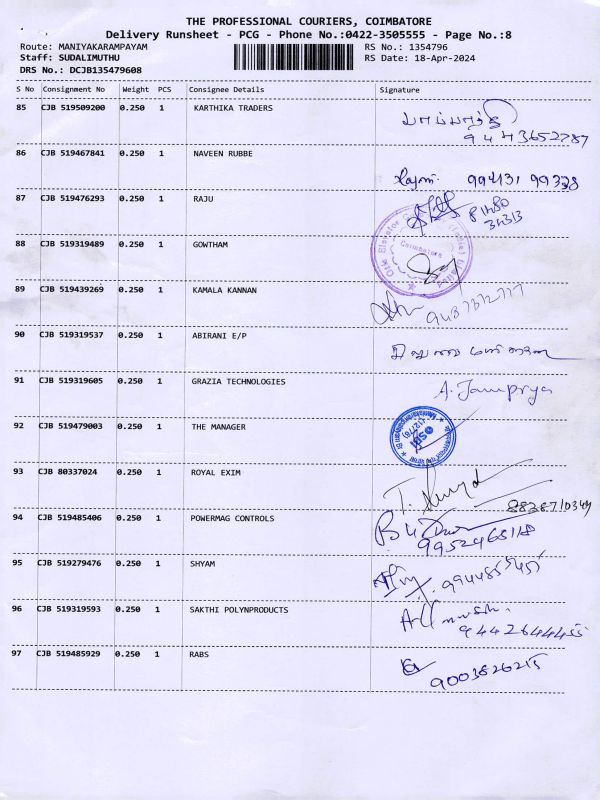 THE PROFESSIONAL COURIERS, COIMBATORE
Delivery Runsheet - PCG - Phone No.:0422-3505555 - Page No.:8
Route: MANIYAKARAMPAYAM RS No.: 1354796
Staff: SUDALIMUTHU RS Date: 18-Apr-2024
DRS No.: DCJB135479608
S No Consignment No Weight PCS Consignee Details Signature
85 CJB 519509200 0.250 1 KARTHIKA TRADERS
9443652787
86 CJB 519467841 0.250 1 NAVEEN RUBBE
99431 99328
87 CJB 519476293 0.250 1 RAJU
88 CJB 519319489 0.250 1 GOWTHAM
Coimbatore
89 CJB 519439269 0.250 1 KAMALA KANNAN
90 CJB 519319537 0.250 1 ABIRANI E/P
91 CJB 519319605 0.250 1 GRAZIA TECHNOLOGIES
92 CJB 519479003 0.250 1 THE MANAGER
SBI
93 CJB 80337024 0.250 1 ROYAL EXIM
94 CJB 519485406 0.250 1 POWERMAG CONTROLS
9952468118
95 CJB 519279476 0.250 1 SHYAM
96 CJB 519319593 0.250 1 SAKTHI POLYNPRODUCTS
9442644455
97 CJB 519485929 0.250 1 RABS
9003826215